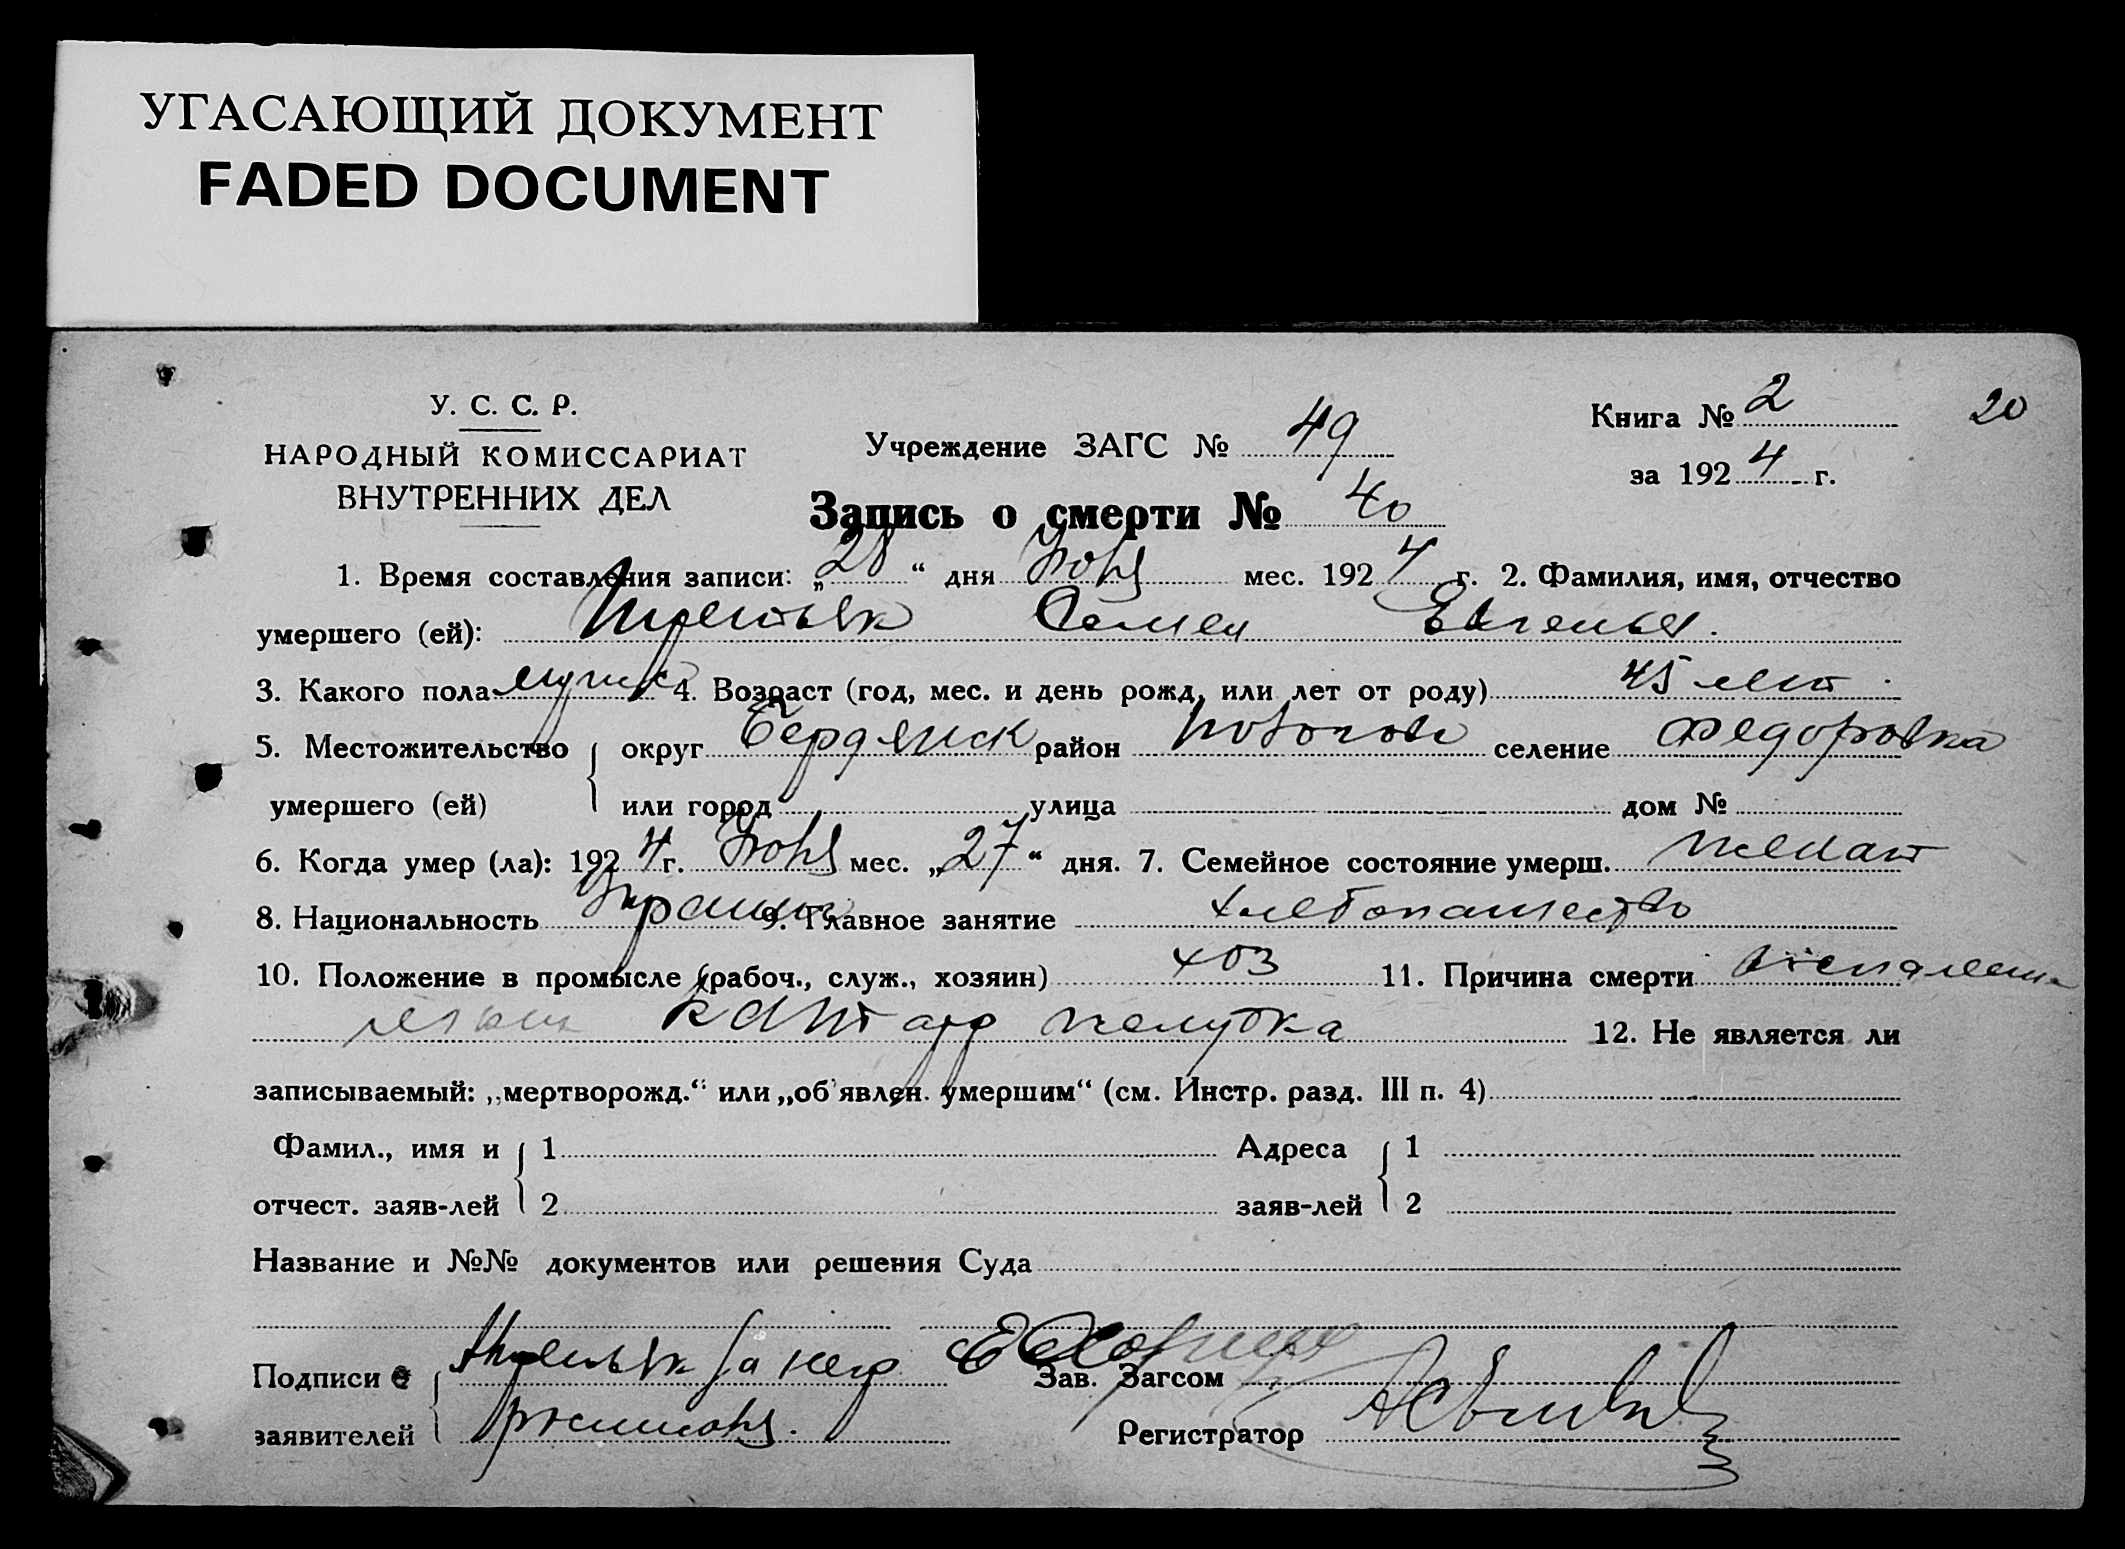 УГАСАЮЩИЙ ДОКУМЕНТ
FADED DOCUMENT
У. С. С. Р.
НАРОДНЫЙ КОМИССАРИАТ
ВНУТРЕННИХ ДЕЛ
Учреждение ЗАГС № 49
Книга № 2
20
за 1924 г.
Запись о смерти № 40
1. Время составления записи: „28“ дня Июня мес. 1924 г. 2. Фамилия, имя, отчество
умершего (ей): Третьяк Семен
3. Какого пола мужс 4. Возраст (год, мес. и день рожд. или лет от роду) 45 лет
5. Местожительство { округ Бердянск район селение Федоровка
умершего (ей) или город улица дом №
6. Когда умер (ла): 1924 г. Июня мес. „27“ дня. 7. Семейное состояние умерш. женат
8. Национальность Украинц 9. Главное занятие хлебопашество
10. Положение в промысле (рабоч., служ., хозяин) хоз 11. Причина смерти
катарр желудка 12. Не является ли
записываемый: „мертворожд.“ или „об'явлен. умершим“ (см. Инстр. разд. III п. 4)
Фамил., имя и { 1 Адреса { 1
отчест. заяв-лей 2 заяв-лей 2
Название и №№ документов или решения Суда
Подписи { Третьяк за негр Зав. Загсом
заявителей Регистратор